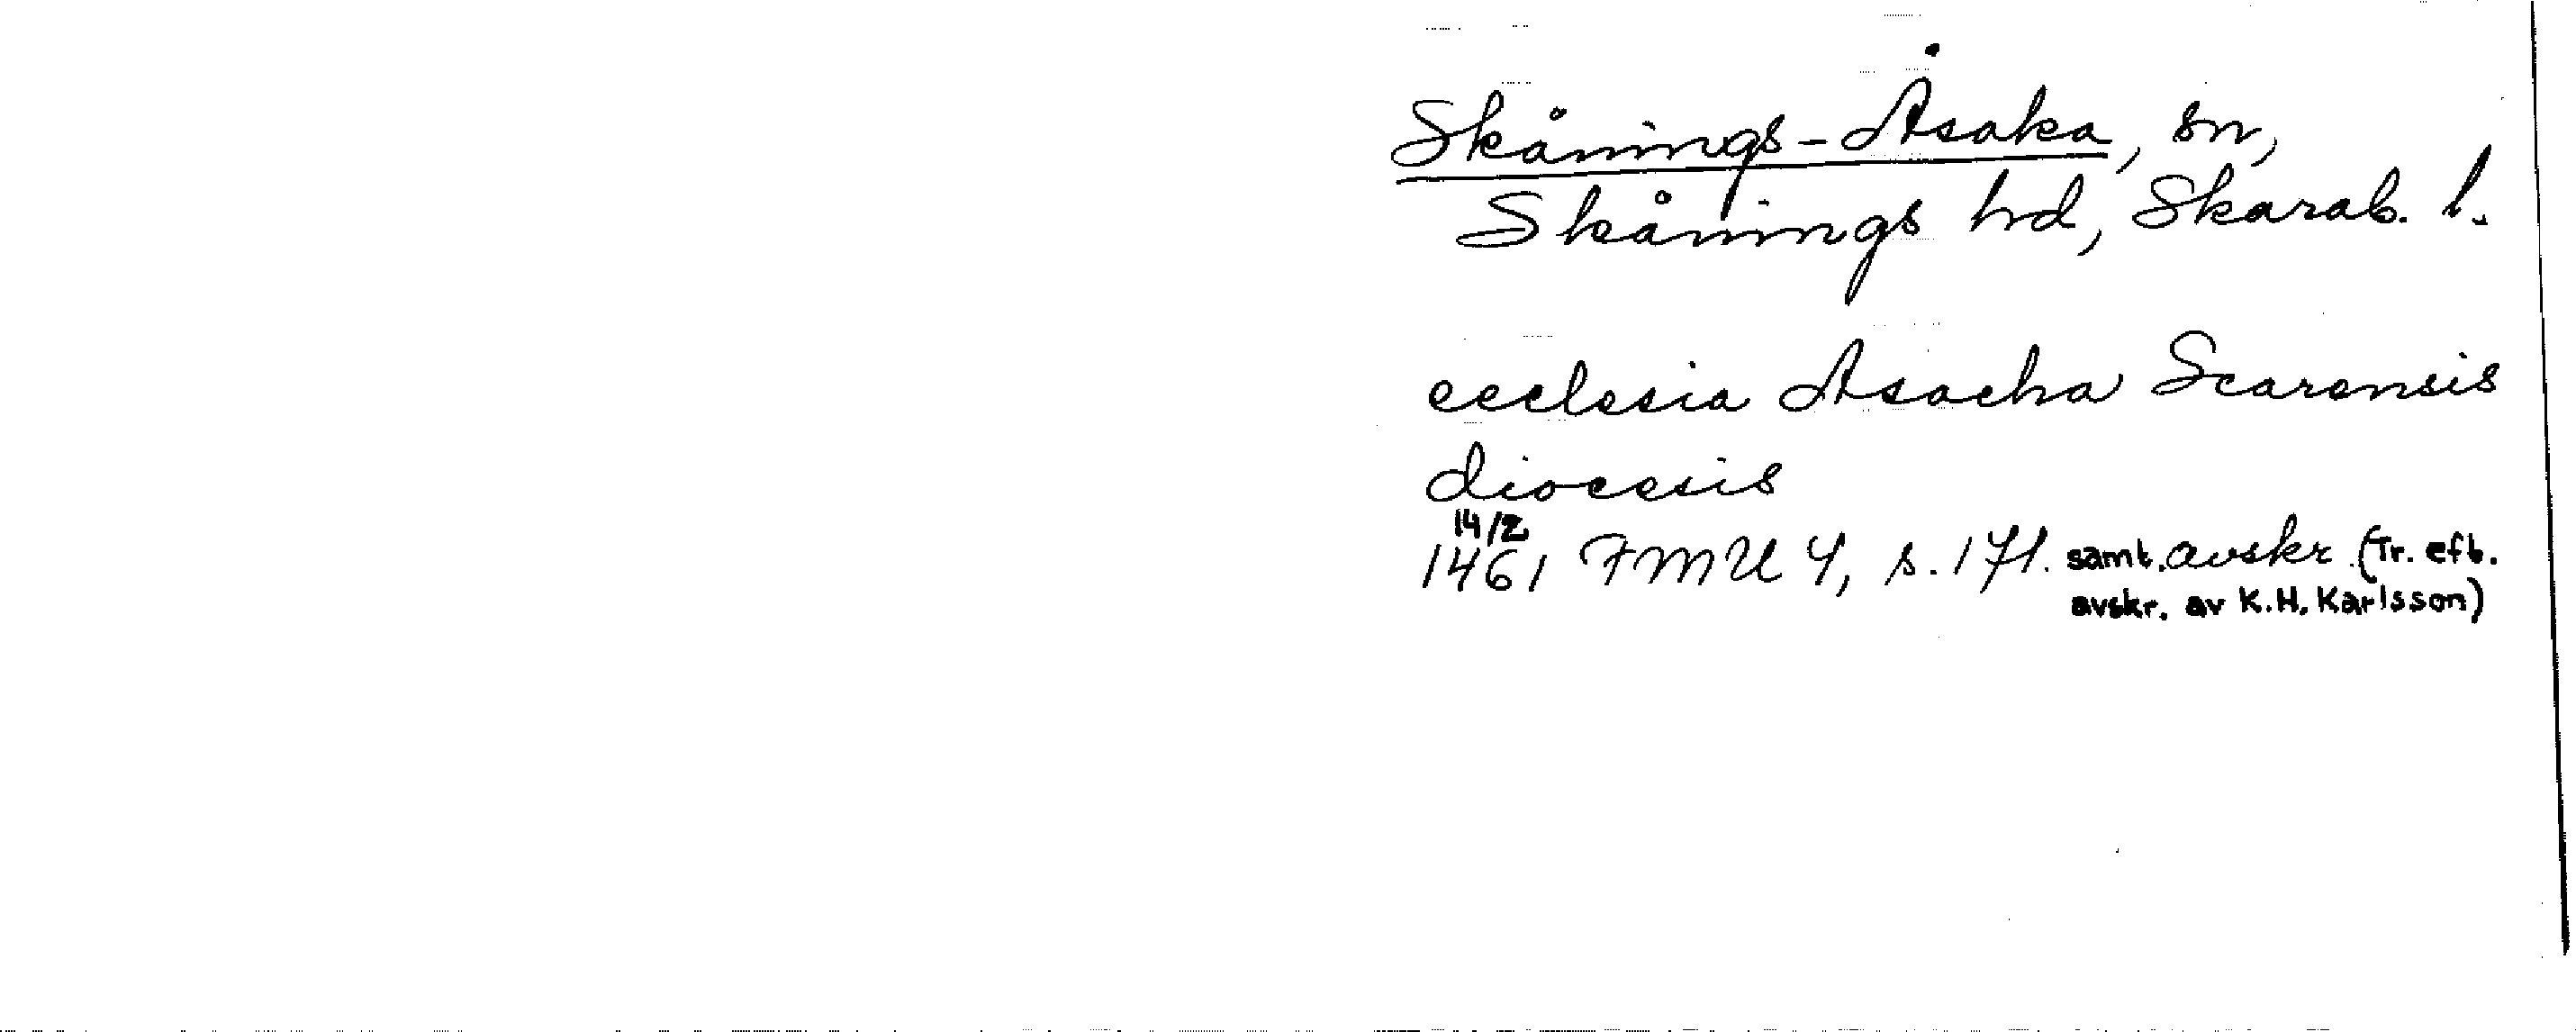 Skånings-Åsaka, sn,
Skånings hd, Skarab. l.
ecclesia Asacha Scarensis
diocesis
14/2
1461 FMU 4, s. 171. samt. avskr. (Tr. eft.
avskr. av K.H. Karlsson)